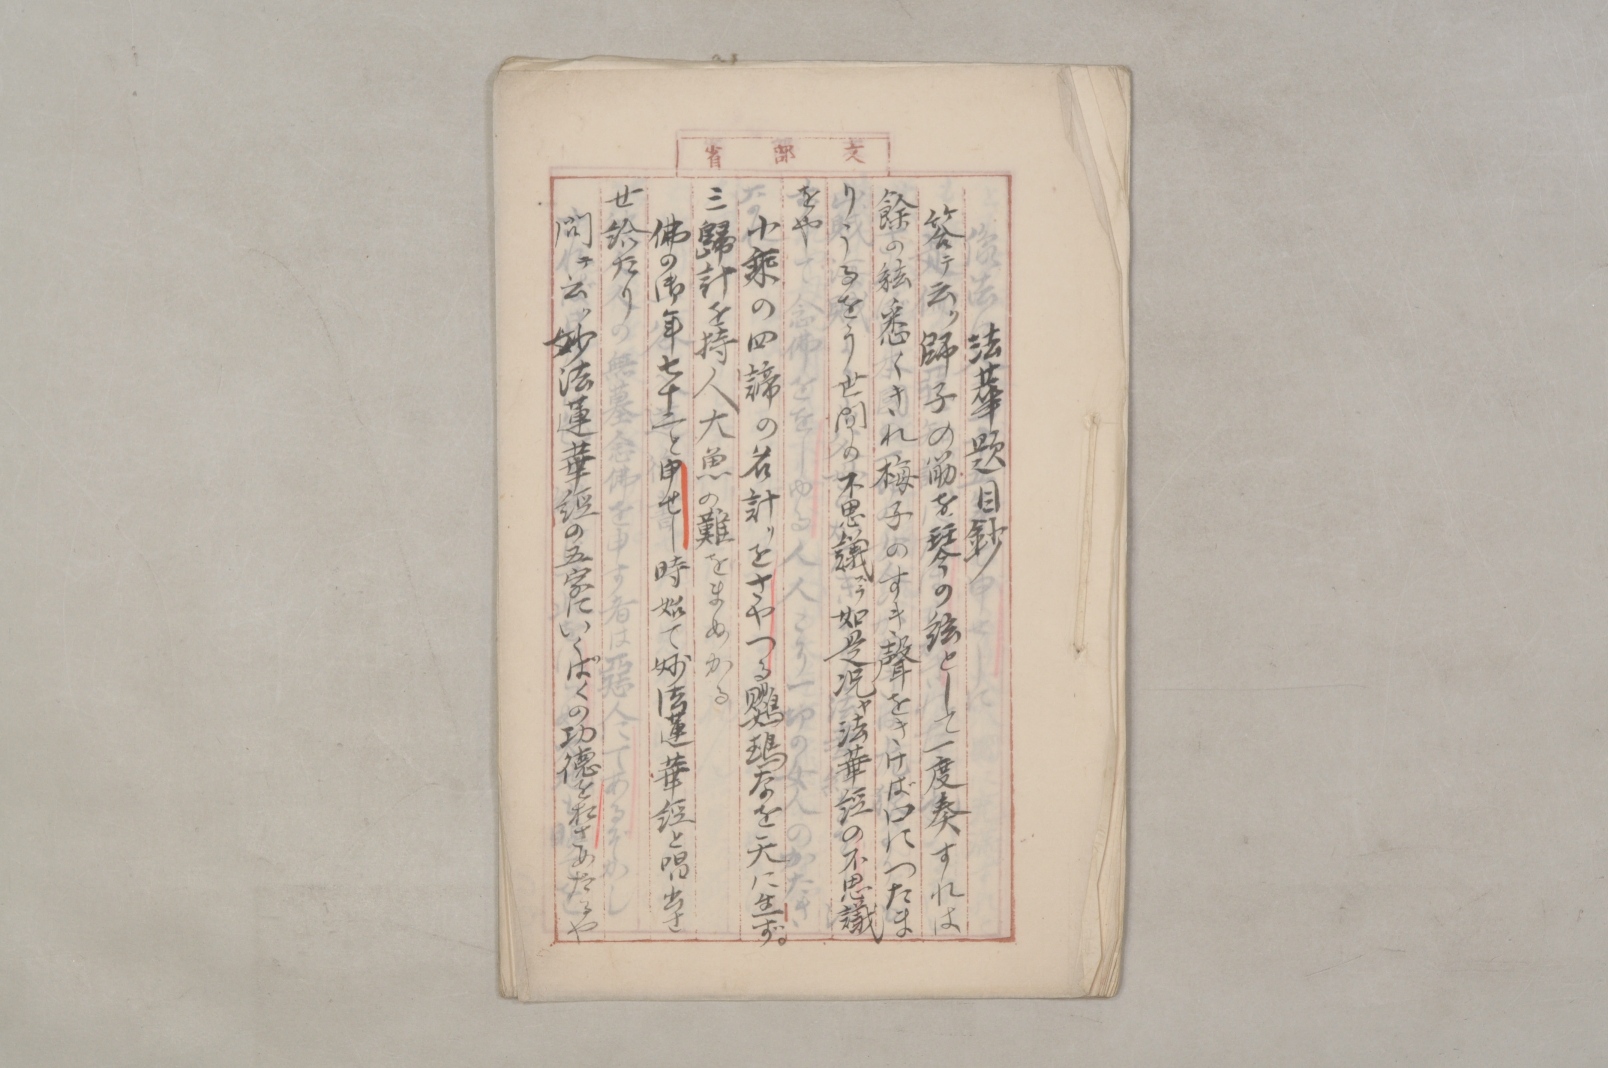 文部省
法華題目鈔
答テ云ク師子の筋を琴の絃として一度奏すれは
餘の絃悉くきれ梅子のすき聲をきけば口につたま
りうるをう世間の不思議ヲ如是况ヤ法華経の不思議
をや
小乗の四諦の名計リをさやつる鸚鵡なを天に生ず
三歸計を持人大魚の難をまぬかる
佛の御年七十二と申せし時始て妙法蓮華経と唱出さ
せ給たり
問テ云ク妙法蓮華経の五字にいくばくの功徳をおさめたるや